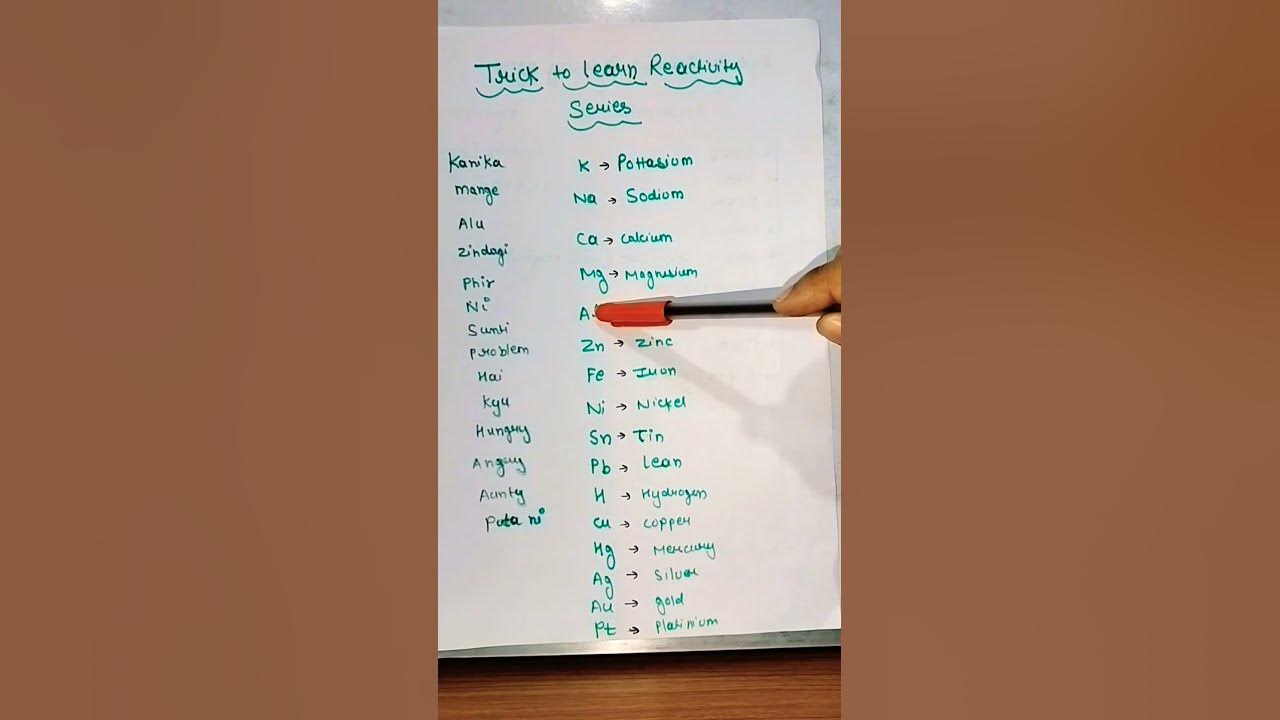 Trick to learn Reactivity
Series
Kanika
mange
Alu
zindagi
Phir
Ni
Sunti
problem
Hai
Kyu
Hungry
Angry
Aunty
Pata ni
K → Pottasium
Na → Sodium
Ca → calcium
Mg → Magnesium
A
Zn → zinc
Fe → Iron
Ni → Nickel
Sn → Tin
Pb → lean
H → Hydrogen
Cu → copper
Hg → Mercury
Ag → Silver
Au → gold
Pt → Platinium